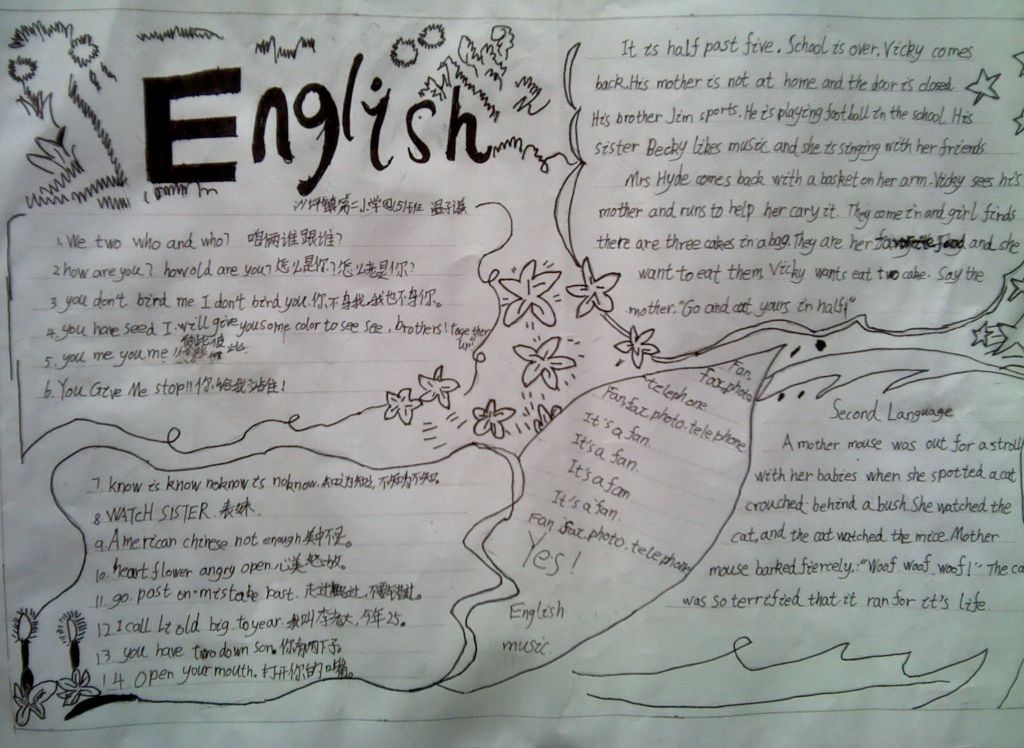 English
沙坪镇第二小学四(5)班 温子谦
1. We two who and who? 咱俩谁跟谁?
2 how are you? how old are you? 怎么是你?怎么老是你?
3. you don't bird me I don't bird you. 你不鸟我,我也不鸟你。
4. you have seed I will give you some color to see see, brothers! together up!
5. you me you me 彼此彼此
6. You Give Me stop!! 你给我站住!
7. know is know noknow is noknow. 知之为知之,不知为不知。
8 WATCH SISTER. 表妹.
9. American chinese not enough 美中不足。
10. heart flower angry open. 心美怒放。
11. go past on mistake past. 走过路过,不要错过。
12. I call Li old big. to year. 我叫李老大,今年25。
13. you have two down son. 你有两下子。
14 Open your mouth. 打开你的嘴。
It is half past five. School is over. Vicky comes
back. His mother is not at home and the door is closed.
His brother Jim sports. He is playing football in the school. His
sister Becky likes music and she is singing with her friends.
Mrs Hyde comes back with a basket on her arm. Vicky sees his
mother and runs to help her cary it. They come in and girl finds
there are three cakes in a bag. They are her favorite food and she
want to eat them. Vicky wants eat two cake. Say the
mother. "Go and eat yours in half!"
Fan,
fax, photo
telephone
Fan, fax, photo, telephone
It's a fan.
It's a fan.
It's a fan
It's a fan.
Fan, fax, photo, telephone
Yes!
English
music.
Second Language
A mother mouse was out for a stroll
with her babies when she spotted a cat
crouched behind a bush. She watched the
cat, and the cat watched the mice. Mother
mouse barked fiercely, "Woof, woof, woof!" The ca
was so terrified that it ran for it's life